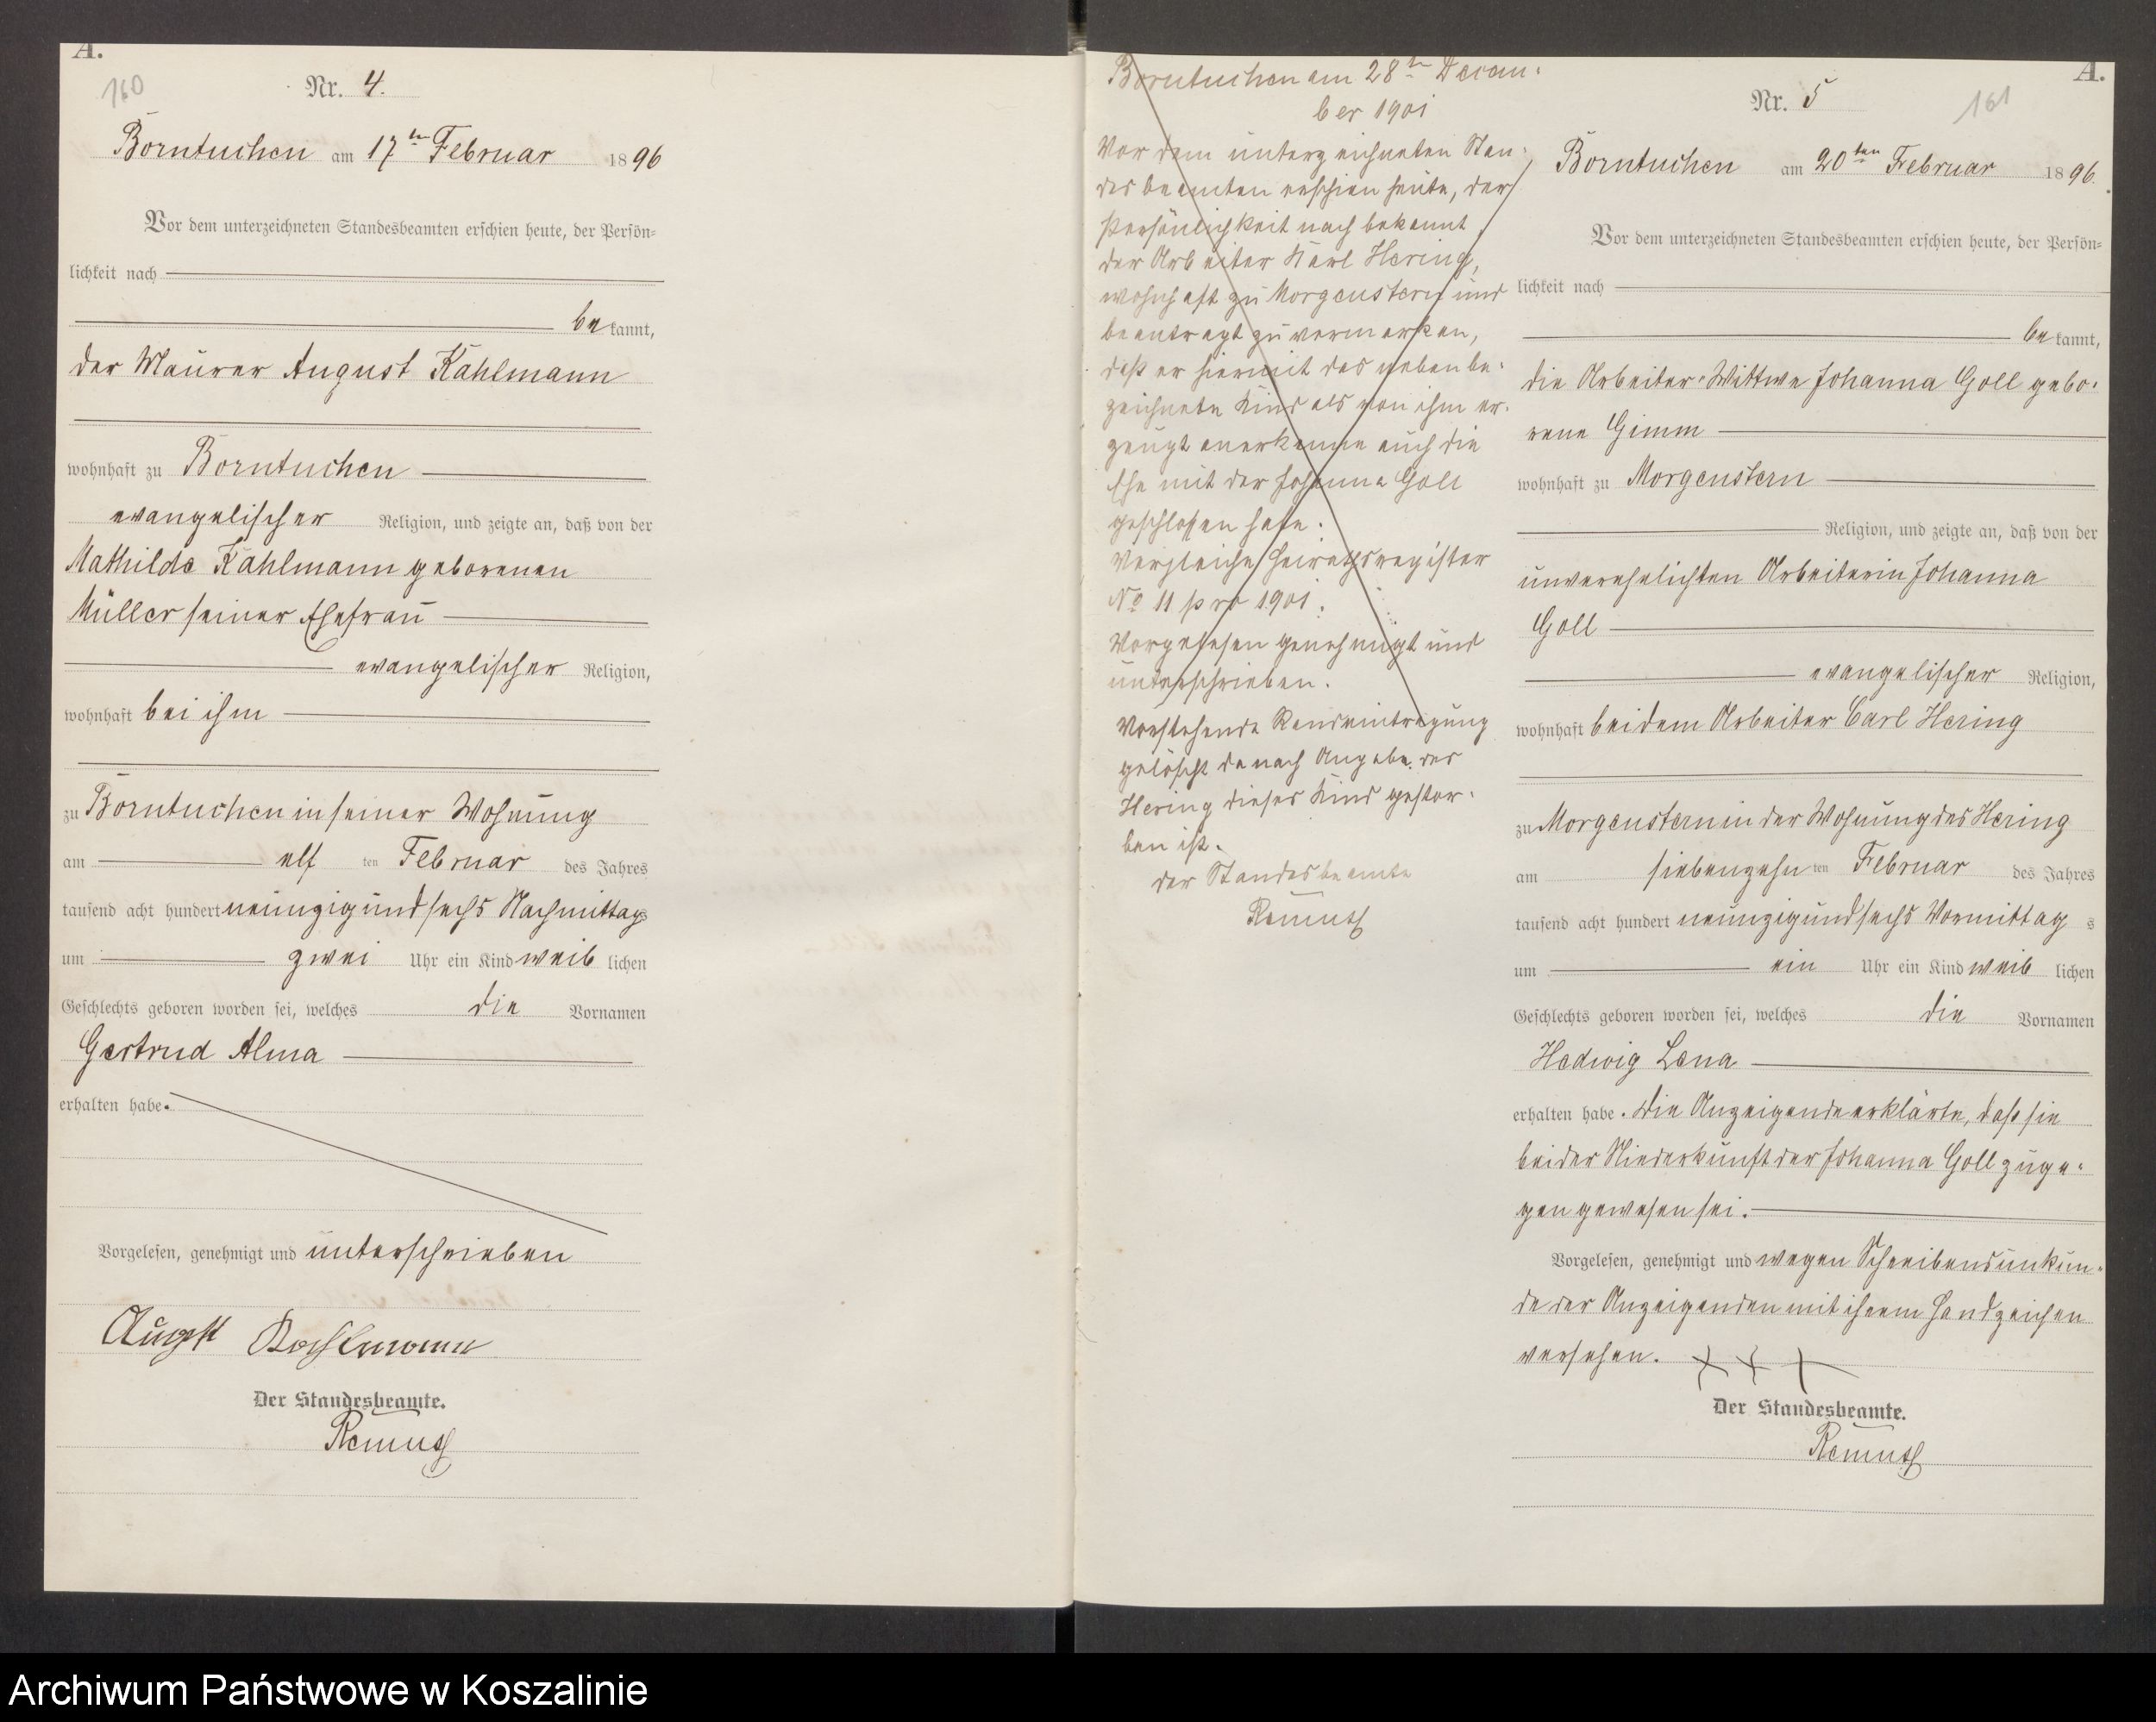 A.
160
Nr. 4.
Borntuchen am 17ten Februar 1896
Vor dem unterzeichneten Standesbeamten erschien heute, der Persön-
lichkeit nach
bekannt,
der Maurer August Kahlmann
wohnhaft zu Borntuchen
evangelischer Religion, und zeigte an, daß von der
Mathilde Kahlmann geborenen
Müller seiner Ehefrau
evangelischer Religion,
wohnhaft bei ihm
zu Borntuchen in seiner Wohnung
am elf ten Februar des Jahres
tausend acht hundert neunzig und sechs Nachmittags
um zwei Uhr ein Kind weiblichen
Geschlechts geboren worden sei, welches die Vornamen
Gertrud Alma
erhalten habe.
Vorgelesen, genehmigt und unterschrieben
August Kahlmann
Der Standesbeamte.
Remus
Borntuchen am 28ten Decem-
ber 1901
Vor dem unterzeichneten Stan-
desbeamten erschien heute, der
Persönlichkeit nach bekannt
der Arbeiter Karl Hering,
wohnhaft zu Morgenstern und
beantragt zu vermerken,
daß er hiermit das nebenbe-
zeichnete Kind als von ihm er-
zeugt anerkenne auch die
Ehe mit der Johanna Goll
geschlossen habe.
Vergleiche Heirathsregister
No 11 pro 1901.
Vorgelesen genehmigt und
unterschrieben.
Vorstehende Randeintragung
gelöscht da nach Angabe des
Hering dieses Kind gestor-
ben ist.
der Standesbeamte
Remus
A.
Nr. 5
161
Borntuchen am 20ten Februar 1896.
Vor dem unterzeichneten Standesbeamten erschien heute, der Persön-
lichkeit nach
bekannt,
die Arbeiter-Wittwe Johanna Goll gebo-
rene Gimm
wohnhaft zu Morgenstern
Religion, und zeigte an, daß von der
unverehelichten Arbeiterin Johanna
Goll
evangelischer Religion,
wohnhaft bei dem Arbeiter Carl Hering
zu Morgenstern in der Wohnung des Hering
am siebenzehn ten Februar des Jahres
tausend acht hundert neunzig und sechs Vormittag s
um ein Uhr ein Kind weiblichen
Geschlechts geboren worden sei, welches die Vornamen
Hedwig Lena
erhalten habe. Die Anzeigende erklärte, daß sie
bei der Niederkunft der Johanna Goll zuge-
gen gewesen sei.
Vorgelesen, genehmigt und wegen Schreibensunkun-
de der Anzeigenden mit ihrem Handzeichen
versehen. + + +
Der Standesbeamte.
Remus
Archiwum Państwowe w Koszalinie